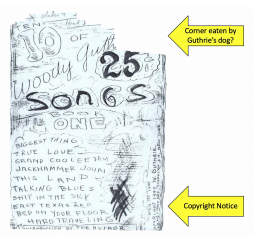 10 OF
Woody Guth
25¢
SONGS
BOOK
ONE
BIGGEST THING
TRUE LOVE
GRAND COOLEE DAM
JACKHAMMER JOHN
THIS LAND
TALKING BLUES
SHIP IN THE SKY
EAST TEXAS RED
BED ON YOUR FLOOR
HARD TRAVELING
OF THE AUTHOR
Corner eaten by
Guthrie's dog?
Copyright Notice